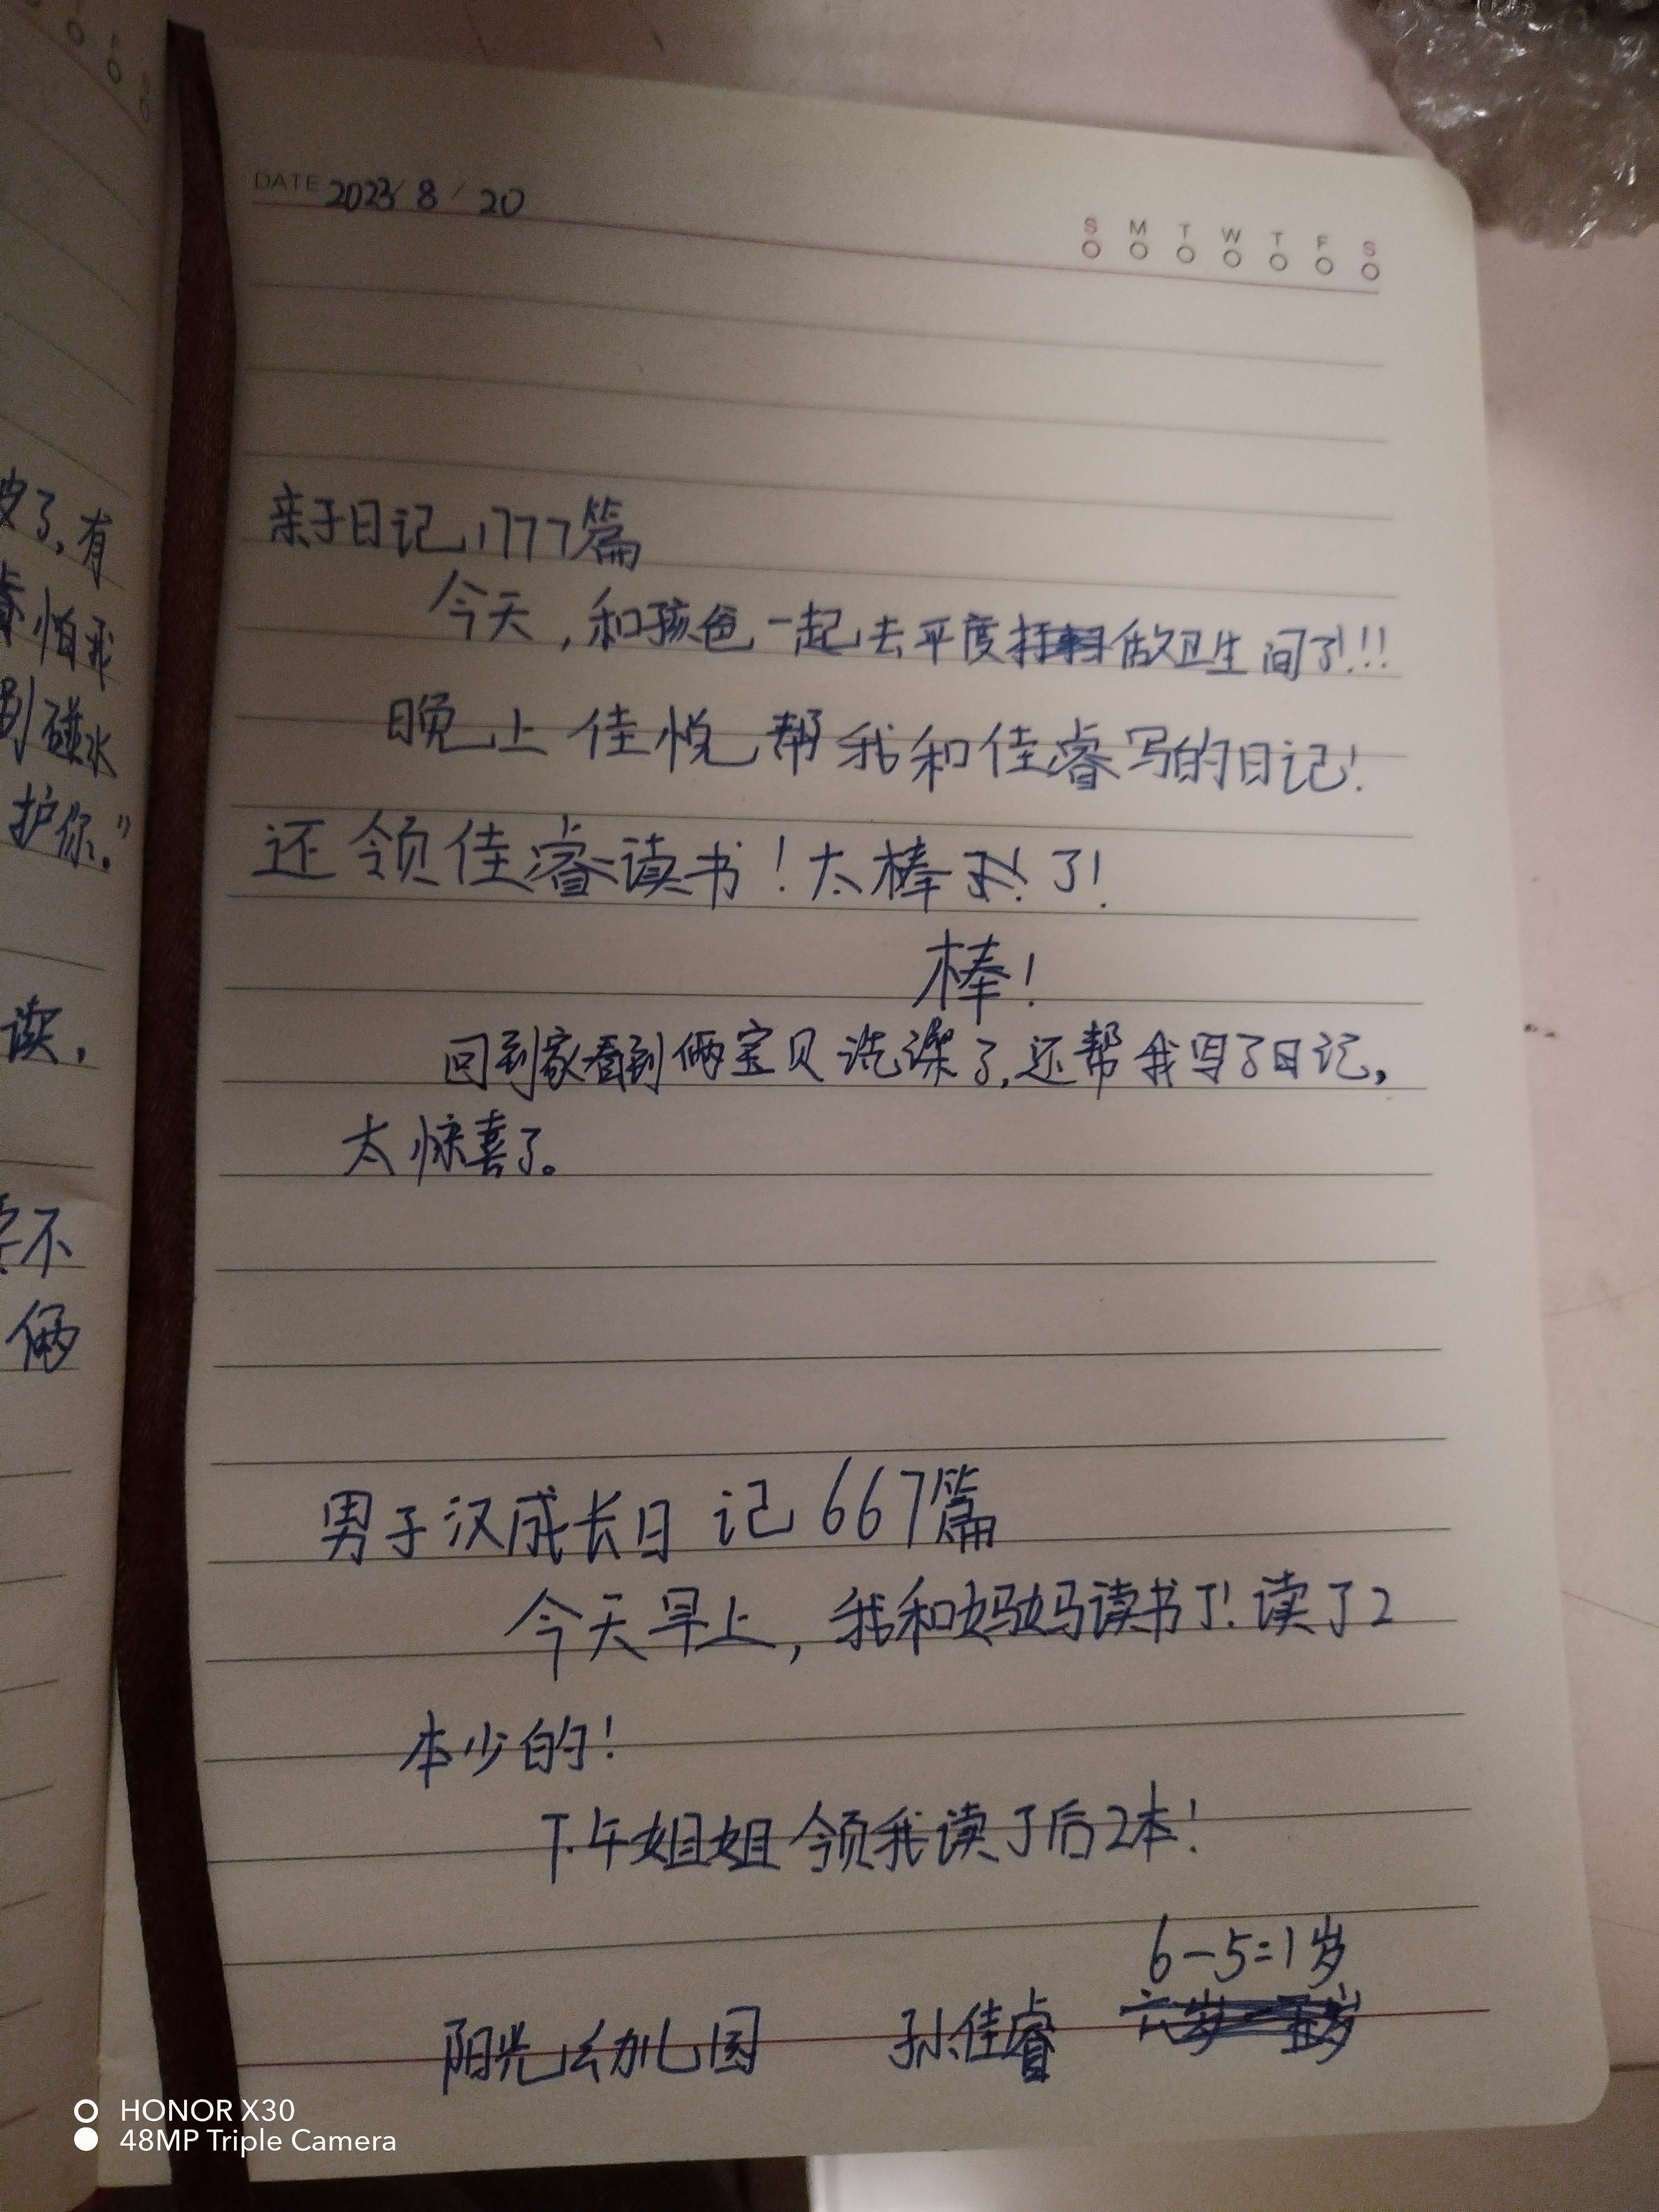 DATE 2023/8/20
S M T W T F S
亲子日记1777篇
今天,和孩爸一起去平度做卫生间了!!!
晚上佳悦帮我和佳睿写的日记!
还领佳睿读书!太棒了!
棒!
回到家看到俩宝贝洗澡了,还帮我写了日记,
太惊喜了。
男子汉成长日记667篇
今天早上,我和妈妈读书了!读了2
本少的!
下午姐姐领我读了后2本!
6-5=1岁
阳光幼儿园 孙佳睿
皮了,有
怕我
碰水
护你。”
读,
不
俩
HONOR X30
48MP Triple Camera